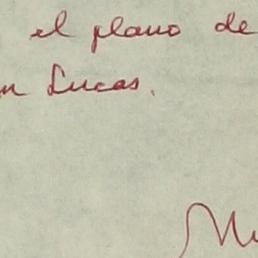 el plano de
Lucas.